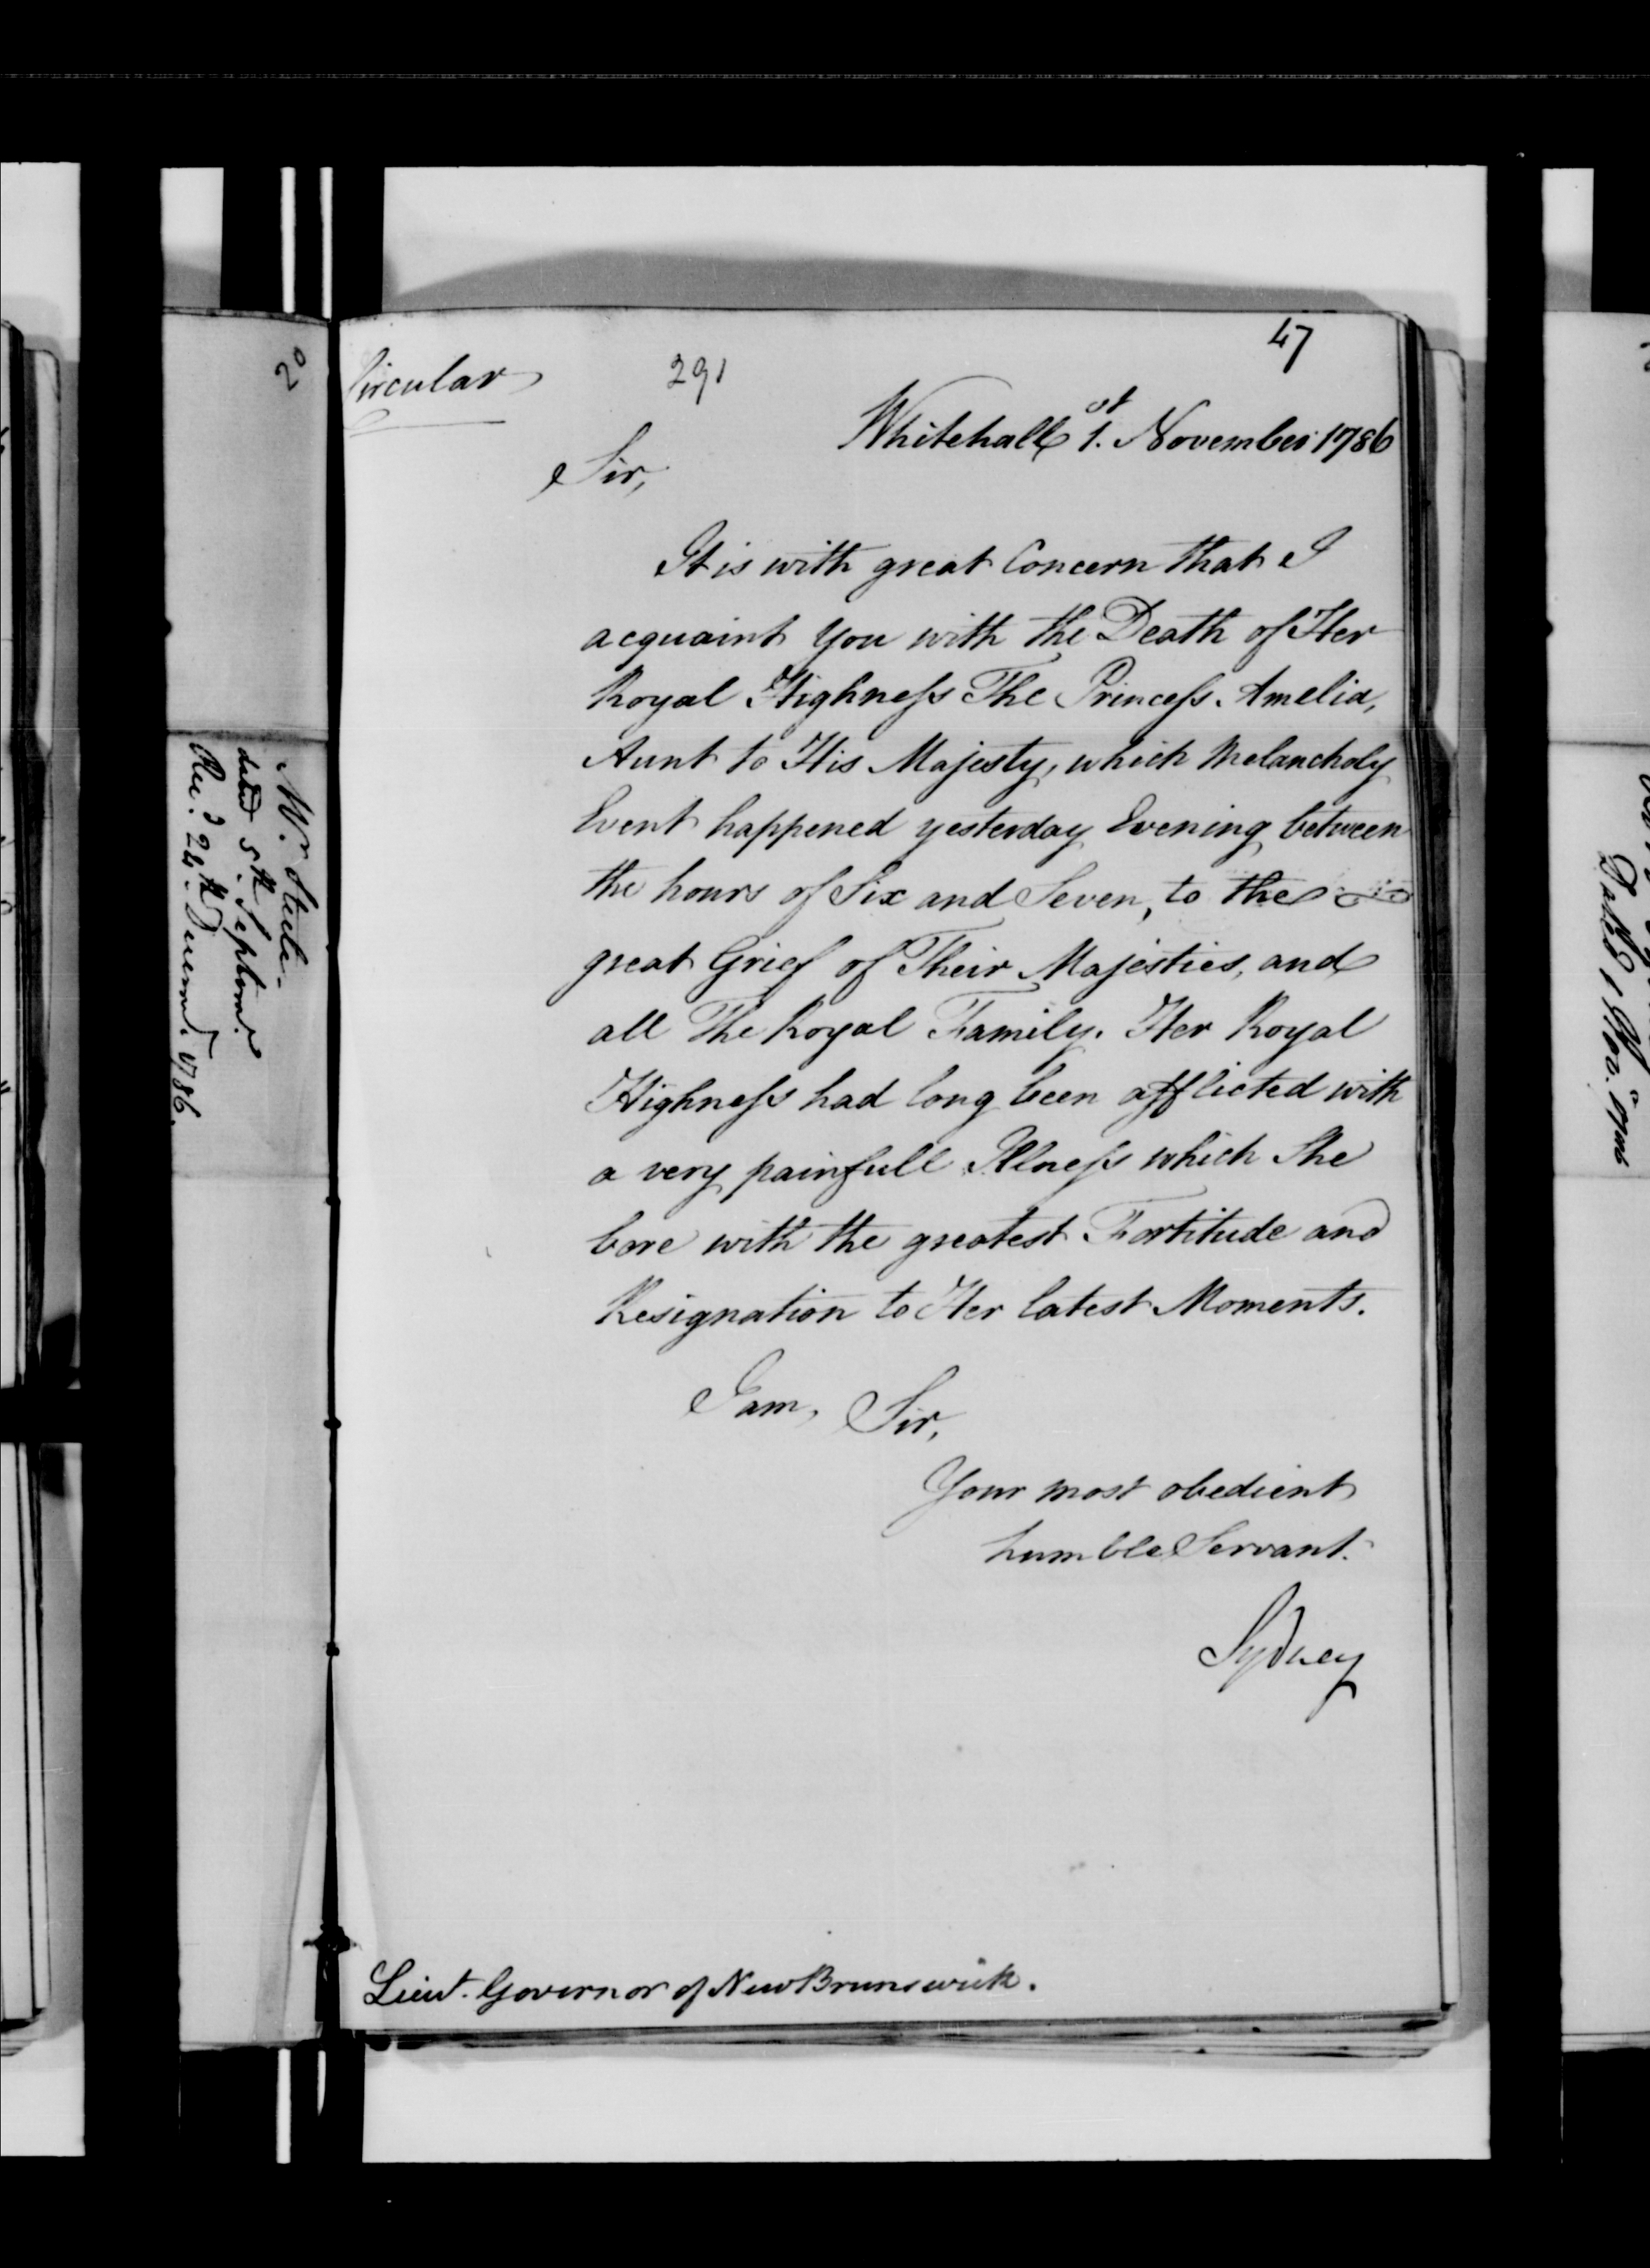 47
Circular
291
Whitehall 1.st November 1786
Sir,
It is with great Concern that I
acquaint You with the Death of Her
Royal Highness The Princess Amelia,
Aunt to His Majesty, which Melancholy
Event happened yesterday Evening between
the hours of Six and Seven, to the
great Grief of Their Majesties, and
all The Royal Family. Her Royal
Highness had long been afflicted with
a very painfull Illness which She
bore with the greatest Fortitude and
Resignation to Her latest Moments.
I am, Sir,
Your most obedient
humble Servant.
Sydney
Lieut. Governor of New Brunswick.
Mr. Steele.
dated 5th Septemr.
Rec.d 24th Decem.r 1786.